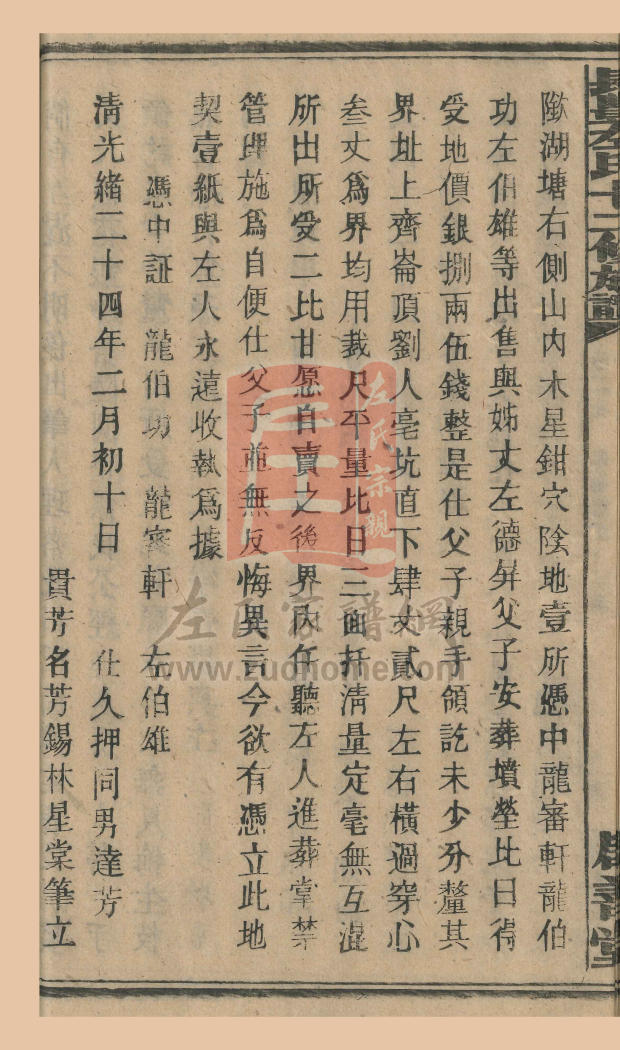 湖塘右側山内木星鉗穴陰地壹所憑中龍審軒龍伯
功左伯雄等出售與姊丈左德昇父子安葬墳塋比日得
受地價銀捌兩伍錢整是仕父子親手領訖未少分釐其
界址上齊崙頂劉人毫坑直下肆丈貳尺左右橫過穿心
叁丈爲界均用裁尺平量比日三面扦清量定毫無互混
所出所受二比甘愿自賣之後界内任聽左人進葬掌禁
管理施爲自便仕父子並無反悔異言今欲有憑立此地
契壹紙與左人永遠收執爲據
憑中証 龍伯功 龍審軒 左伯雄
淸光緒二十四年二月初十日 仕久押同男達芳
貫芳名芳錫林星棠筆立
左氏 十二修族譜
左氏宗親
左氏家譜網
www.zuohome.com